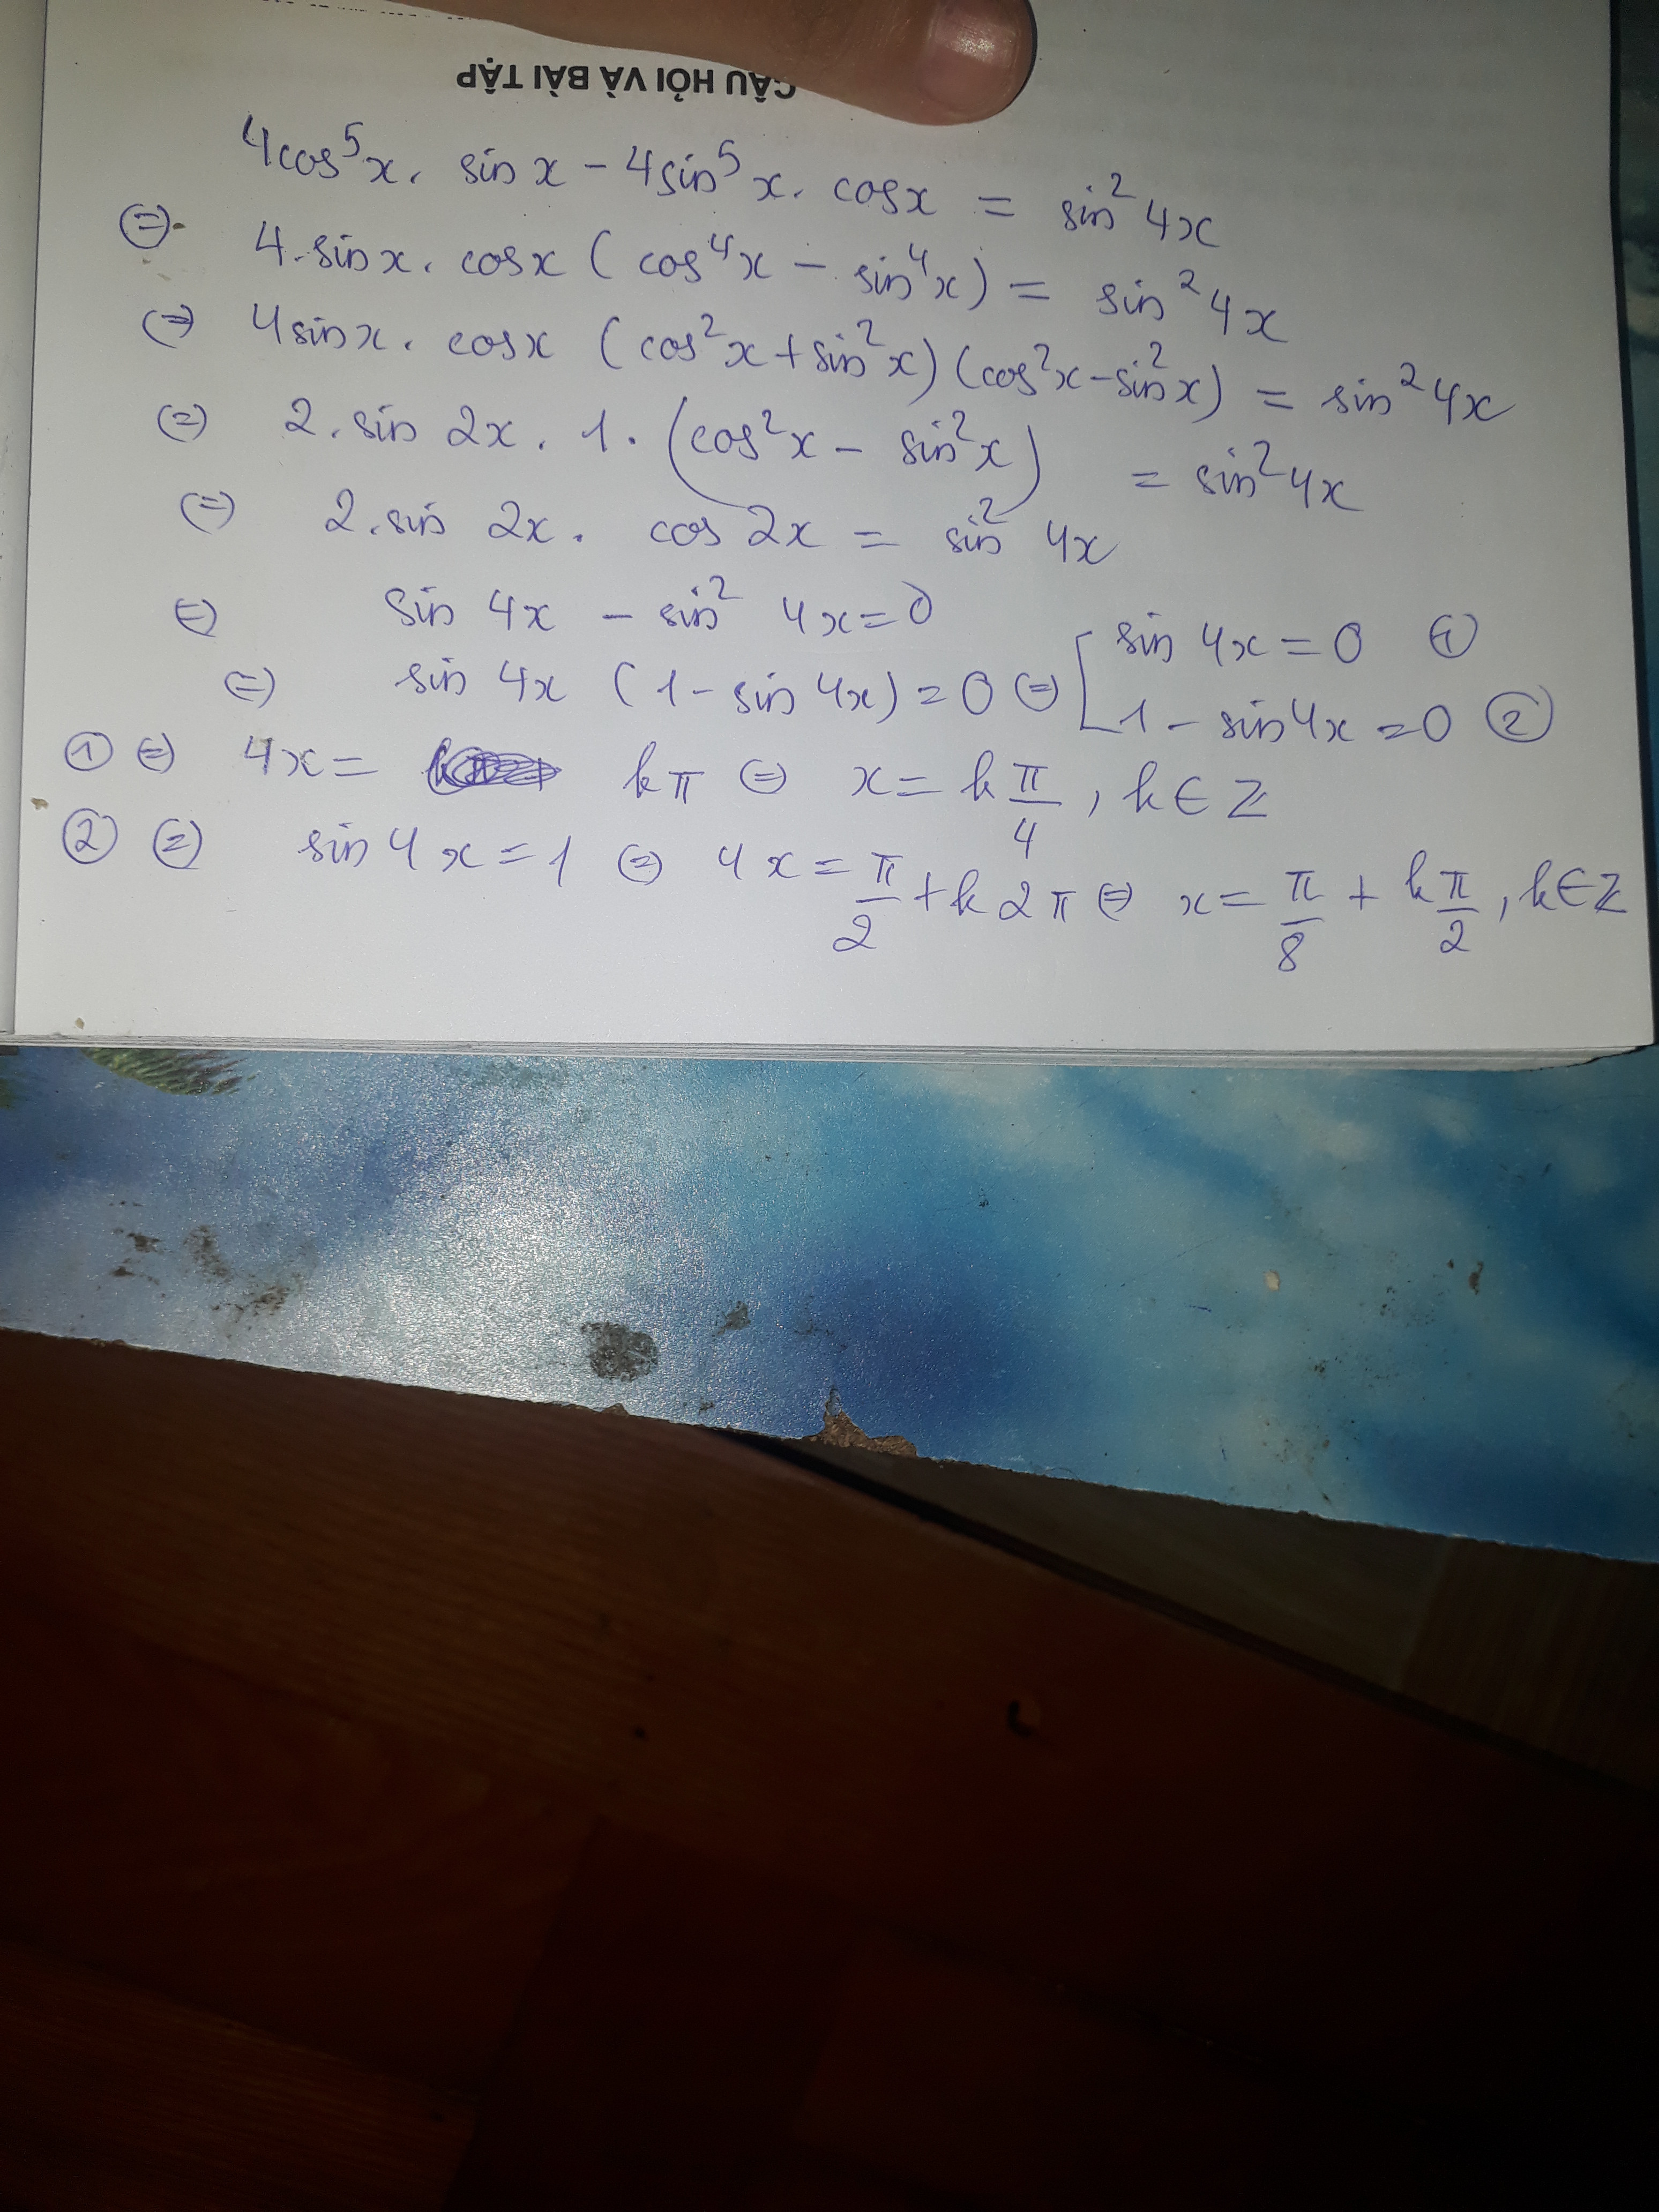 CÂU HỎI VÀ BÀI TẬP
4cos⁵x. sin x − 4sin⁵x. cosx = sin²4x
⇔ 4.sinx. cosx (cos⁴x − sin⁴x) = sin²4x
⇔ 4sinx. cosx (cos²x + sin²x)(cos²x − sin²x) = sin²4x
⇔ 2.sin 2x. 1. (cos²x − sin²x) = sin²4x
⇔ 2.sin 2x. cos 2x = sin² 4x
⇔ sin 4x − sin² 4x = 0
⇔ sin 4x (1 − sin 4x) = 0 ⇔ [ sin 4x = 0 ①
1 − sin4x = 0 ②
① ⇔ 4x = kπ ⇔ x = k π/4, k ∈ Z
② ⇔ sin 4x = 1 ⇔ 4x = π/2 + k2π ⇔ x = π/8 + kπ/2, k ∈ Z